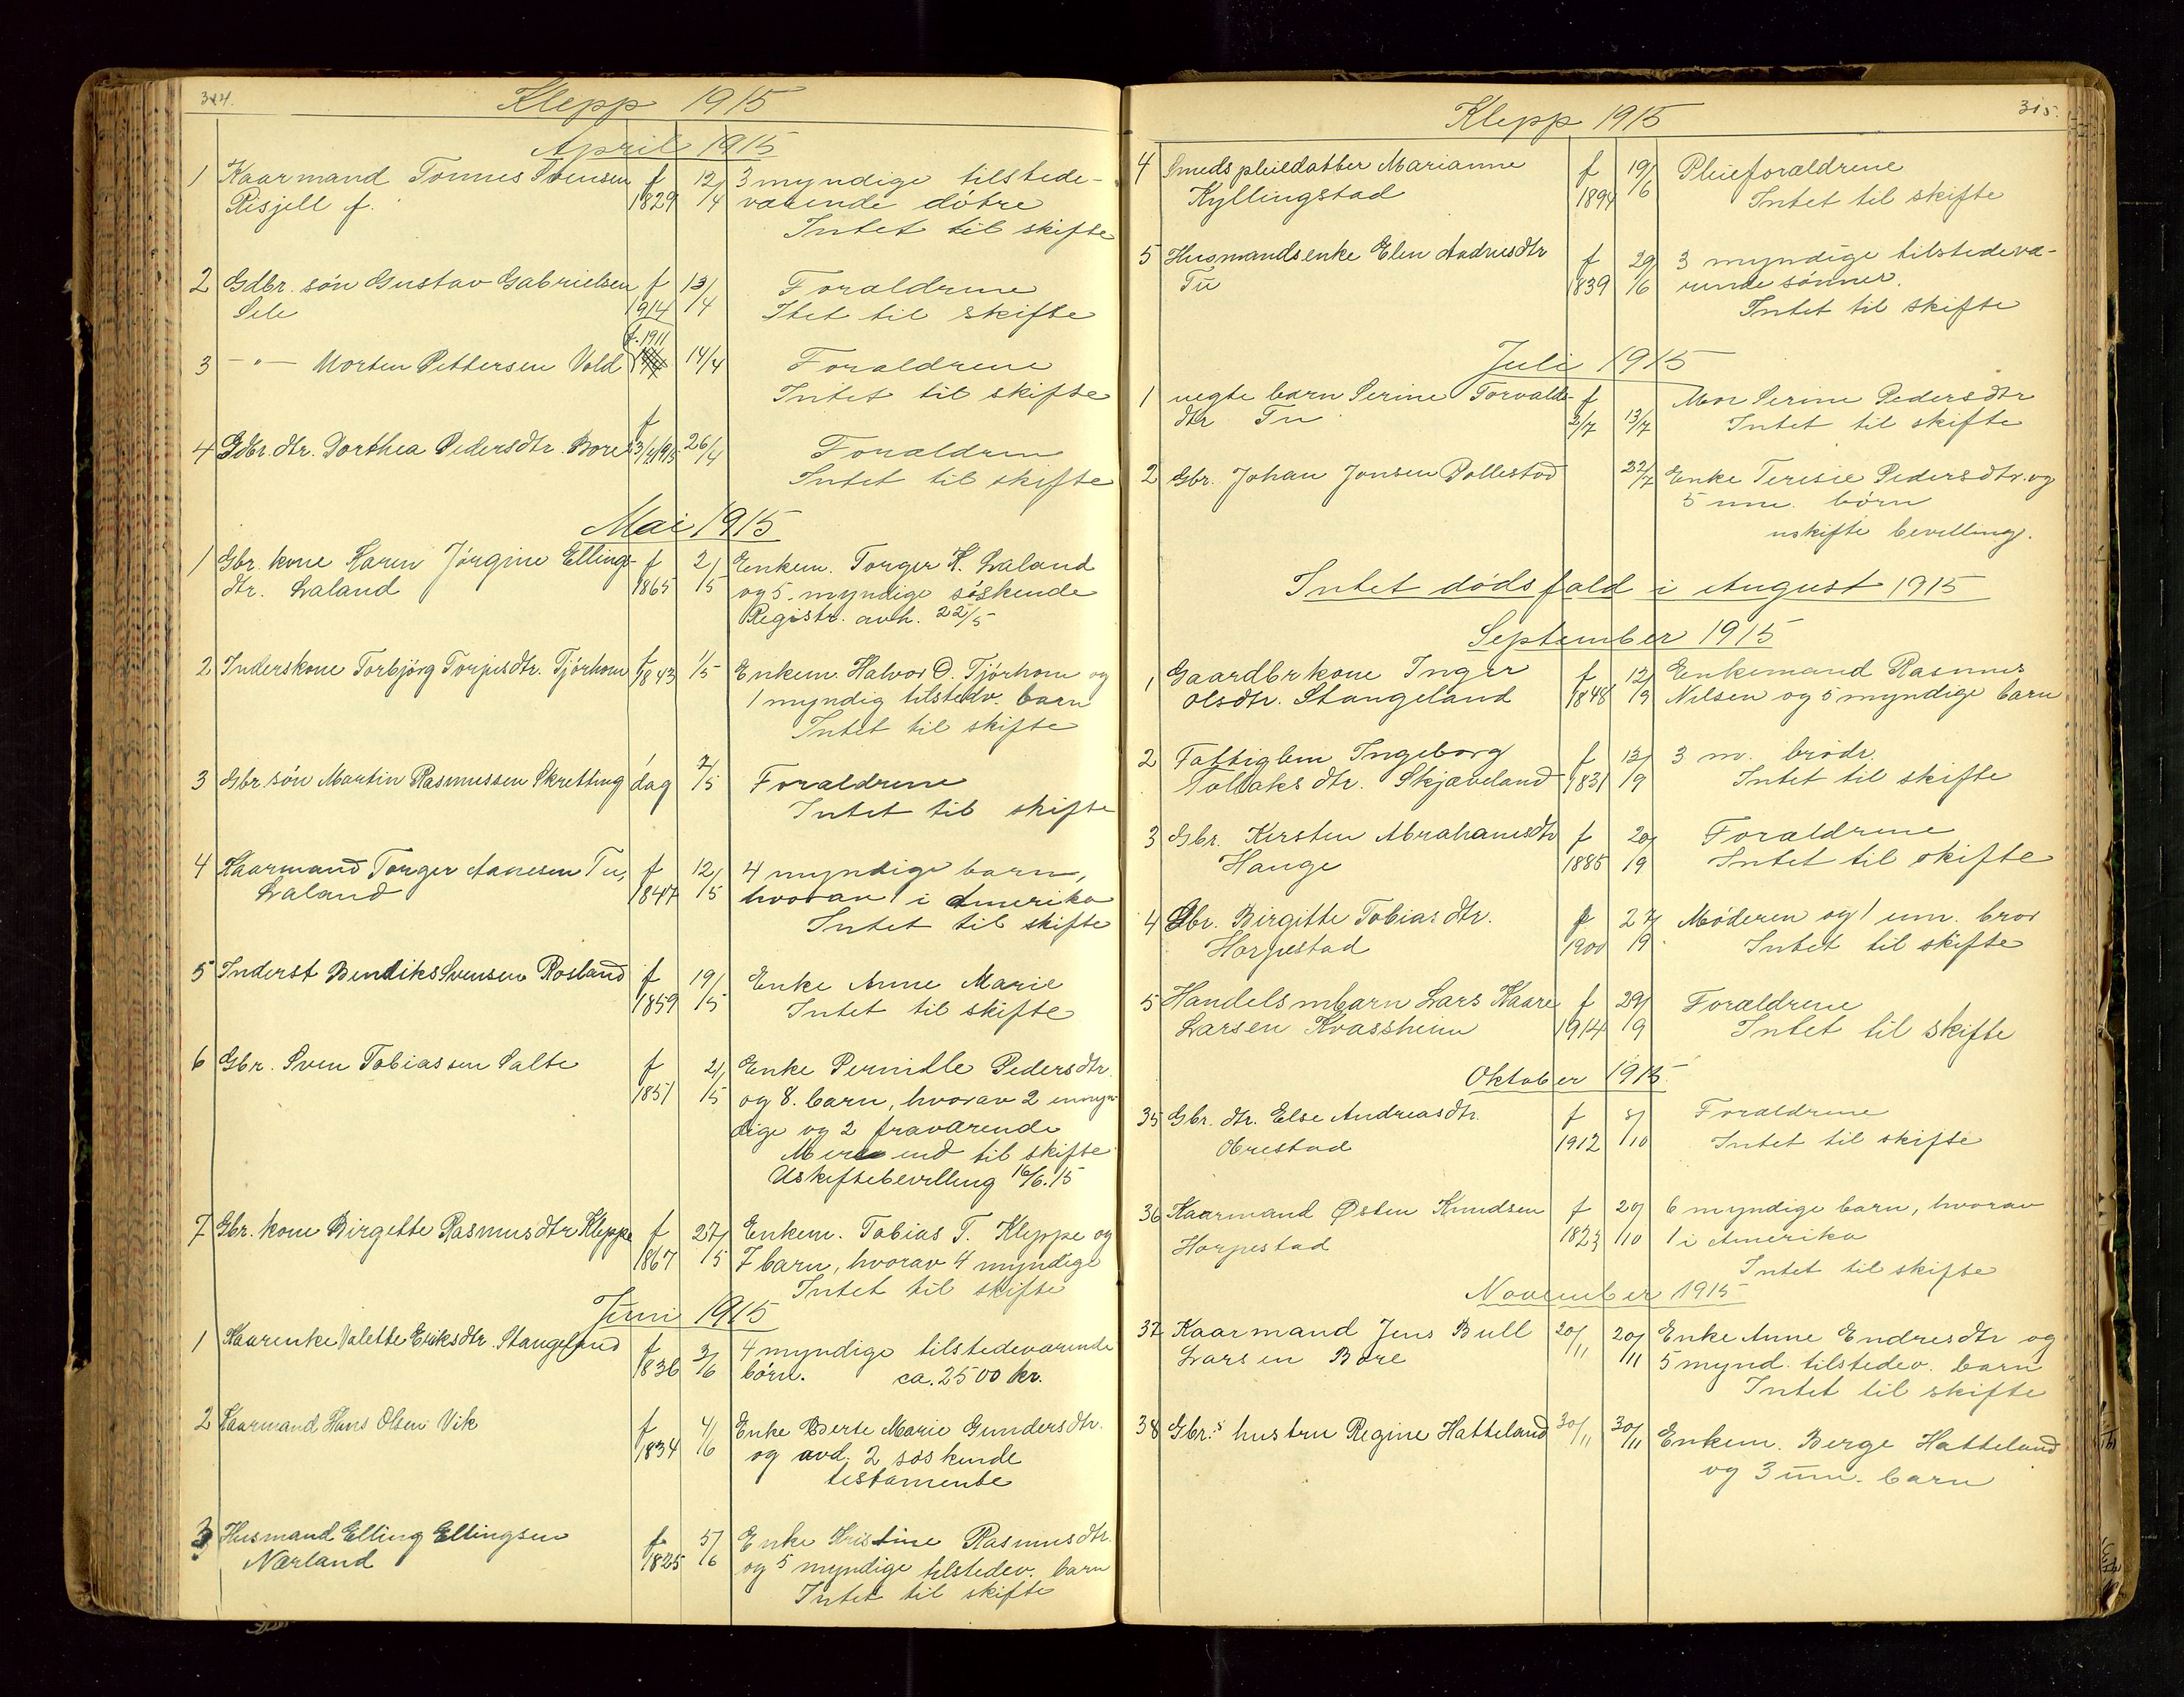 314.
Klepp 1915
April 1915
1 Kaarmand Tønnes Svensen f 12/ 3 myndige tilstede-
Risjell f. 1829 /4 værende døtre
Intet til skifte
2 Gdbr. søn Gustav Gabrielsen f 13/ Forældrene
Sele 1914 /4 Itet til skifte
f. 1911
3 - " - Morten Pettersen Vold 14/4 Forældrene
Intet til skifte
f
4 Gdbr. dtr. Dorthea Pedersdtr. Bore 23/4 1915 26/4 Forældren
Intet til skifte
Mai 1915
1 Gbr. kone Karen Jørgine Ellings- f 2/ Enkem. Torger K. Laland
dtr. Laland 1865 /5 og 5. myndige søskende
Registr. avh. 22/5
2 Inderskone Torbjørg Torjusdtr. Tjørhom f 1843 1/5 Enkem. Halvor O. Tjørhom og
1 myndig tilstedv. barn
Intet til skifte
3 Gbr. søn Martin Rasmussen Skretting 1 dag 7/5 Forældrene
Intet til skifte
4 Kaarmand Torger Aanesen Tu, f 12/ 4 myndige barn,
Laland 1847 /5 hvorav 1 i Amerika
Intet til skifte
5 Inderst Bendiks Svensen Rosland f 19/ Enke Anne Marie
1859 /5 Intet til skifte
6 Gbr. Sven Tobiassen Salte f 21/ Enke Pernille Pedersdtr.
1851 /5 og 8. barn, hvorav 2 umyn-
dige og 2 fraværende
Mere end til skifte
Uskiftebevilling 16/6. 15
7 Gbr. kone Birgitte Rasmusdtr Kleppe f 27/ Enkem. Tobias T. Kleppe og
1867 /5 7 barn, hvorav 4 myndige
Intet til skifte
Juni 1915
1 Kaarenke Valette Eriksdtr. Stangeland f 3/6 4 myndige tilstedeværende
1836 børn. ca. 2500 kr.
2 Kaarmand Hans Olsen Vik f 4/ Enke Berte Marie Gundersdtr.
1834 /6 og avd. 2 søskende
testamente
3 Husmand Elling Ellingsen f 5/ Enke Kristine Rasmusdtr.
Nærland 1825 /6 og 5 myndige tilstedev. barn
Intet til skifte
315.
Klepp 1915
4 Smeds pleiedatter Marianne f 19/ Pleieforældrene
Kyllingstad 1894 /6 Intet til skifte
5 Husmandsenke Elen Andreasdtr f 29/ 3 myndige tilstedevæ-
Tu 1839 /6 rende sønner.
Intet til skifte
Juli 1915
1 uegte barn Serine Torvalds- f Mor Serine Pedersdtr
dtr Tu 2/7 13/7 Intet til skifte
2 Gbr. Johan Jonsen Pollestad 22/7 Enke Teresie Pedersdtr. og
5 um. børn
uskifte bevilling.
Intet dødsfald i August 1915
September 1915
1 Gaardbrkone Inger f 12/ Enkemand Rasmus
Olsdtr. Stangeland 1848 /9 Nilsen og 5 myndige barn
2 Fattiglem Ingeborg f 13/ 3 m. brødr.
Tollaksdtr. Skjæveland 1831 /9 Intet til skifte
3 Gbr. Kirsten Abrahamsdtr f 20/ Forældrene
Hauge 1885 /9 Intet til skifte
4 Gbr. Birgitte Tobiasdtr. f 27/ Moderen og 1 um. bror
Horpestad 1900 /9 Intet til skifte
5 Handelsmbarn Lars Kaare f 29/ Forældrene
Larsen Kvassheim 1914 /9 Intet til skifte
Oktober 1915
35 Gbr. dtr. Else Andreasdtr. f 8/ Forældrene
Orrestad 1912 /10 Intet til skifte
36 Kaarmand Østen Knudsen f 20/ 6 myndige barn, hvorav
Horpestad 1823 /10 1 i Amerika
Intet til skifte
November 1915
37 Kaarmand Jens Bull 20/11 20/11 Enke Anne Endresdtr og
Larsen Bore 5 mynd. tilstedev. barn
Intet til skifte
38 Gbr.s hustru Regine Hatteland 30/11 30/11 Enkem. Berge Hatteland
og 3 um. barn